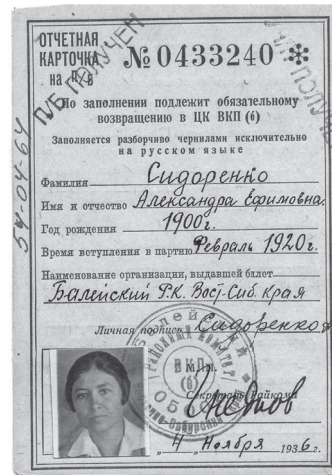 ОТЧЕТНАЯ
КАРТОЧКА
на п/б
№ 0433240 *
П/Б ПОЛУЧЕН
По заполнении подлежит обязательному
возвращению в ЦК ВКП (б)
Заполняется разборчиво чернилами исключительно
на русском языке
Фамилия Сидоренко
Имя и отчество Александра Ефимовна
Год рождения 1900г.
Время вступления в партию Февраль 1920г.
Наименование организации, выдавшей билет
Балейский Р.К. Вост-Сиб. Края
Личная подпись Сидоренко
М.П.
РАЙОННЫЙ КОМИТЕТ
ВКП
(б)
Секретарь Райкома
"4" Ноября 1936 г.
54-04-64